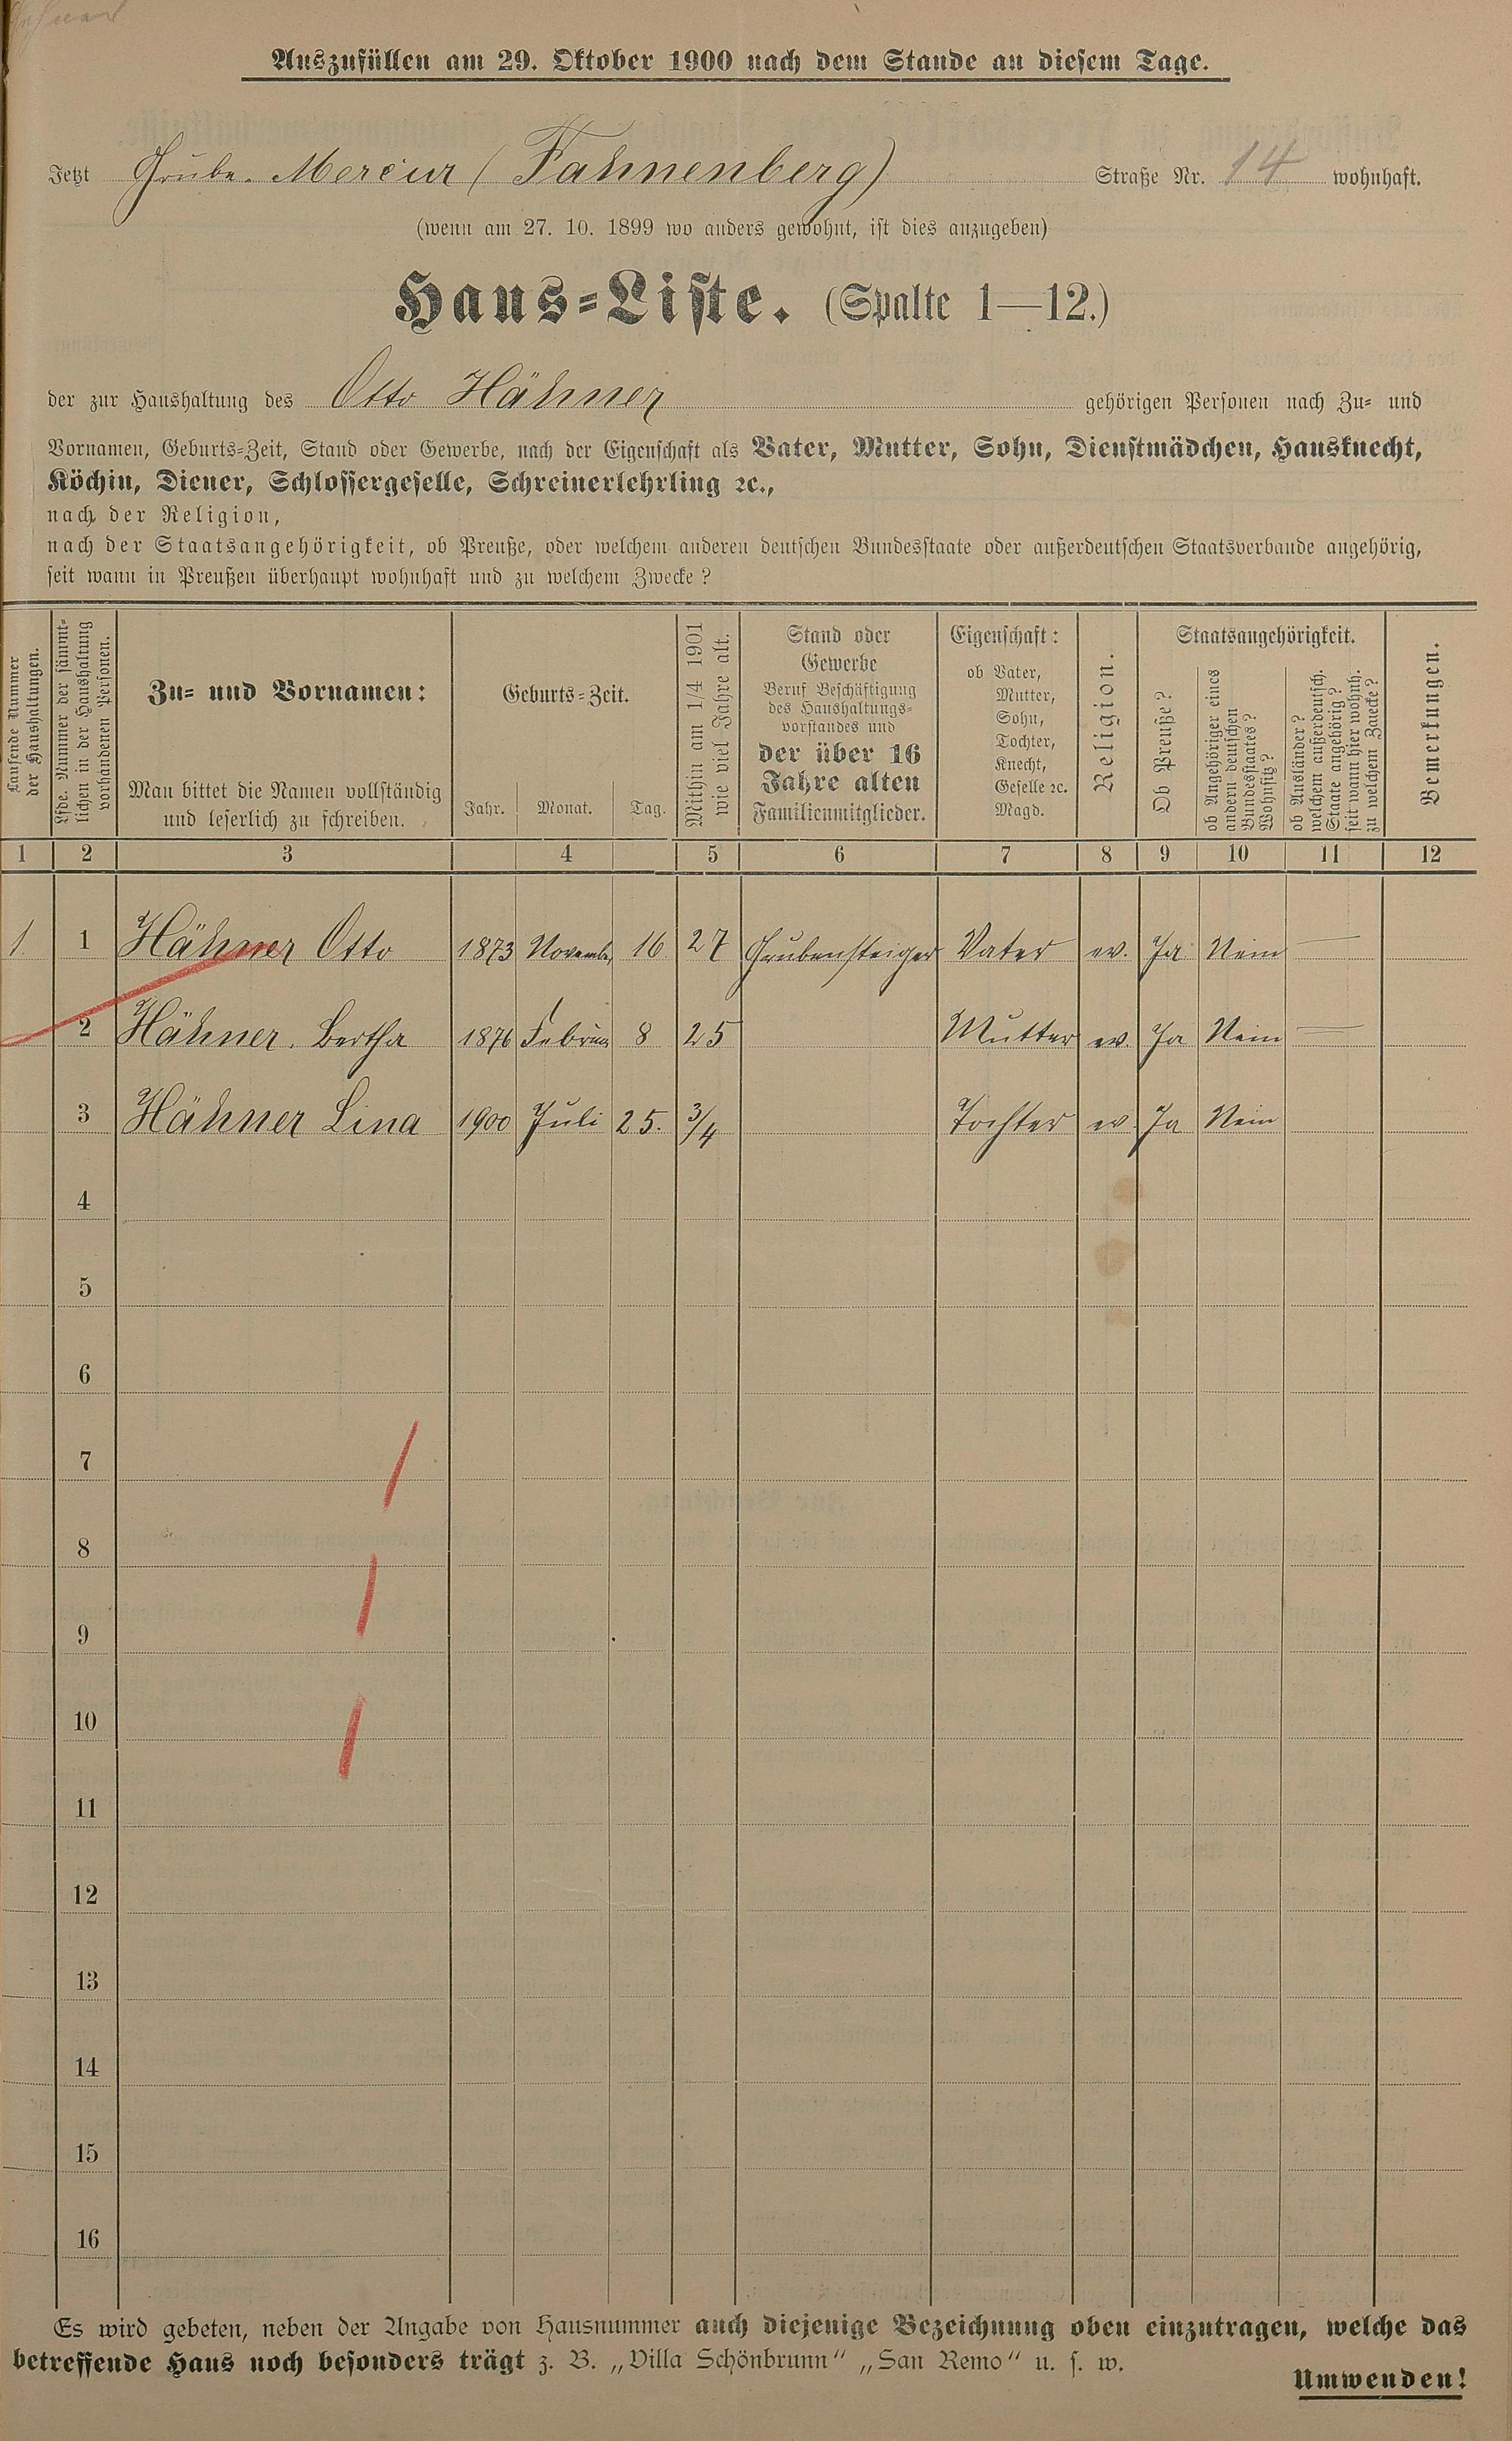 Auszufüllen am 29. Oktober 1900 nach dem Stande an diesem Tage.
Jetzt Grube. Mercur (Fahnenberg) Straße Nr. 14 wohnhaft.
(wenn am 27. 10. 1899 wo anders gewohnt, ist dies anzugeben)
Haus-Liste. (Spalte 1—12.)
der zur Haushaltung des Otto Hähner gehörigen Personen nach Zu- und
Vornamen, Geburts-Zeit, Stand oder Gewerbe, nach der Eigenschaft als Vater, Mutter, Sohn, Dienstmädchen, Hausknecht,
Köchin, Diener, Schlossergeselle, Schreinerlehrling ꝛc.,
nach der Religion,
nach der Staatsangehörigkeit, ob Preuße, oder welchem anderen deutschen Bundesstaate oder außerdeutschen Staatsverbande angehörig,
seit wann in Preußen überhaupt wohnhaft und zu welchem Zwecke?
Laufende Nummer
der Haushaltungen.
Lfde. Nummer der sämmt-
lichen in der Haushaltung
vorhandenen Personen.
Zu- und Vornamen:
Man bittet die Namen vollständig
und leserlich zu schreiben.
Geburts-Zeit.
Jahr. Monat. Tag.
Mithin am 1/4 1901
wie viel Jahre alt.
Stand oder
Gewerbe
Beruf Beschäftigung
des Haushaltungs-
vorstandes und
der über 16
Jahre alten
Familienmitglieder.
Eigenschaft:
ob Vater,
Mutter,
Sohn,
Tochter,
Knecht,
Geselle ꝛc.
Magd.
Religion.
Staatsangehörigkeit.
Ob Preuße?
ob Angehöriger eines
andern deutschen
Bundesstaates?
Wohnsitz?
ob Ausländer?
welchem außerdeutsch.
Staate angehörig?
seit wann hier wohnh.
zu welchem Zwecke?
Bemerkungen.
1 2 3 4 5 6 7 8 9 10 11 12
1. 1 Hähner Otto 1873 November 16 27 Grubensteiger Vater ev. Ja Nein —
2 Hähner. Bertha 1876 Februar 8 25 Mutter ev. Ja Nein —
3 Hähner Lina 1900 Juli 25. 3/4 Tochter ev. Ja Nein
4
5
6
7
8
9
10
11
12
13
14
15
16
Es wird gebeten, neben der Angabe von Hausnummer auch diejenige Bezeichnung oben einzutragen, welche das
betreffende Haus noch besonders trägt z. B. „Villa Schönbrunn“ „San Remo“ u. s. w.
Umwenden!